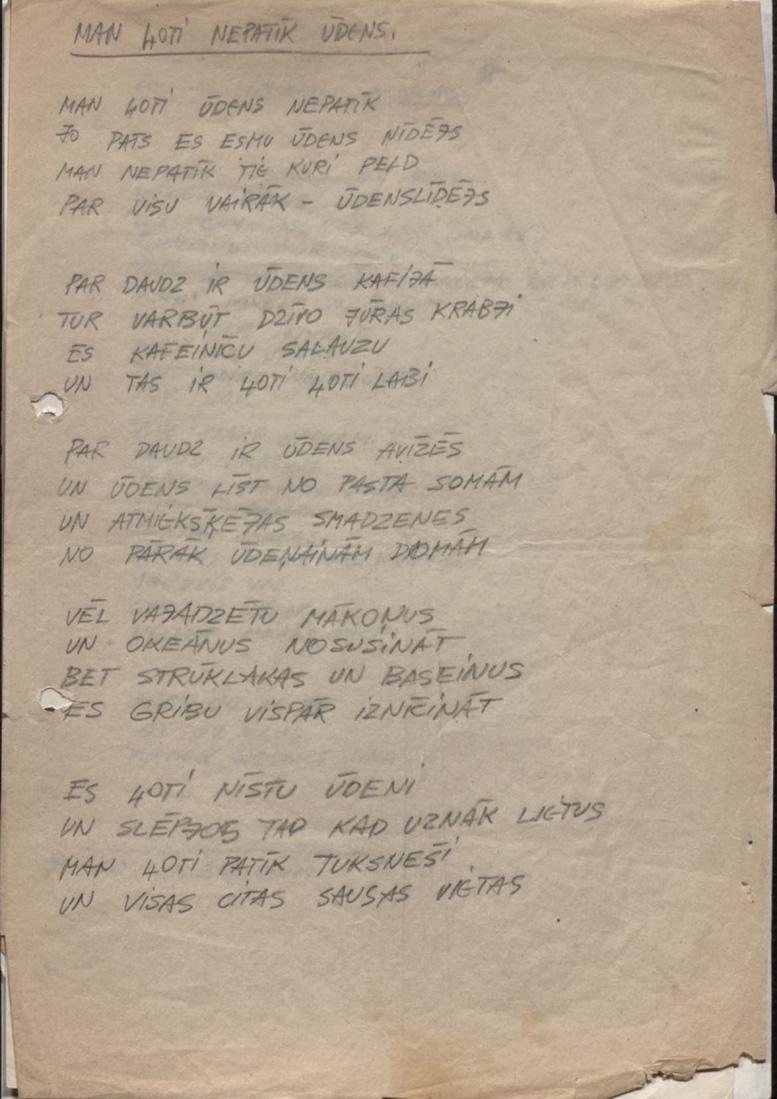 MAN ĻOTI NEPATĪK ŪDENS.
MAN ĻOTI ŪDENS NEPATĪK
JO PATS ES ESMU ŪDENS NĪDĒJS
MAN NEPATĪK TIE KURI PELD
PAR VISU VAIRĀK – ŪDENSLĪDĒJS
PAR DAUDZ IR ŪDENS KAFIJĀ
TUR VARBŪT DZĪVO JŪRAS KRABJI
ES KAFEINĪCU SALAUZU
UN TAS IR ĻOTI ĻOTI LABI
PAR DAUDZ IR ŪDENS AVĪZĒS
UN ŪDENS LĪST NO PASTA SOMĀM
UN ATMIEKŠĶĒJAS SMADZENES
NO PĀRĀK ŪDEŅAINĀM DOMĀM
VĒL VAJADZĒTU MĀKOŅUS
UN OKEĀNUS NOSUSINĀT
BET STRŪKLAKAS UN BASEINUS
ES GRIBU VISPĀR IZNĪCINĀT
ES ĻOTI NĪSTU ŪDENI
UN SLĒPJOS TAD KAD UZNĀK LIETUS
MAN ĻOTI PATĪK TUKSNEŠI
UN VISAS CITAS SAUSAS VIETAS